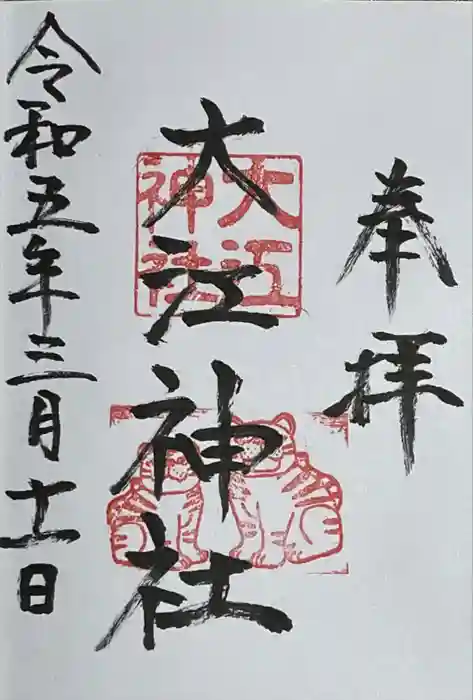 奉拝
大江神社
大江神社
令和五年三月十一日